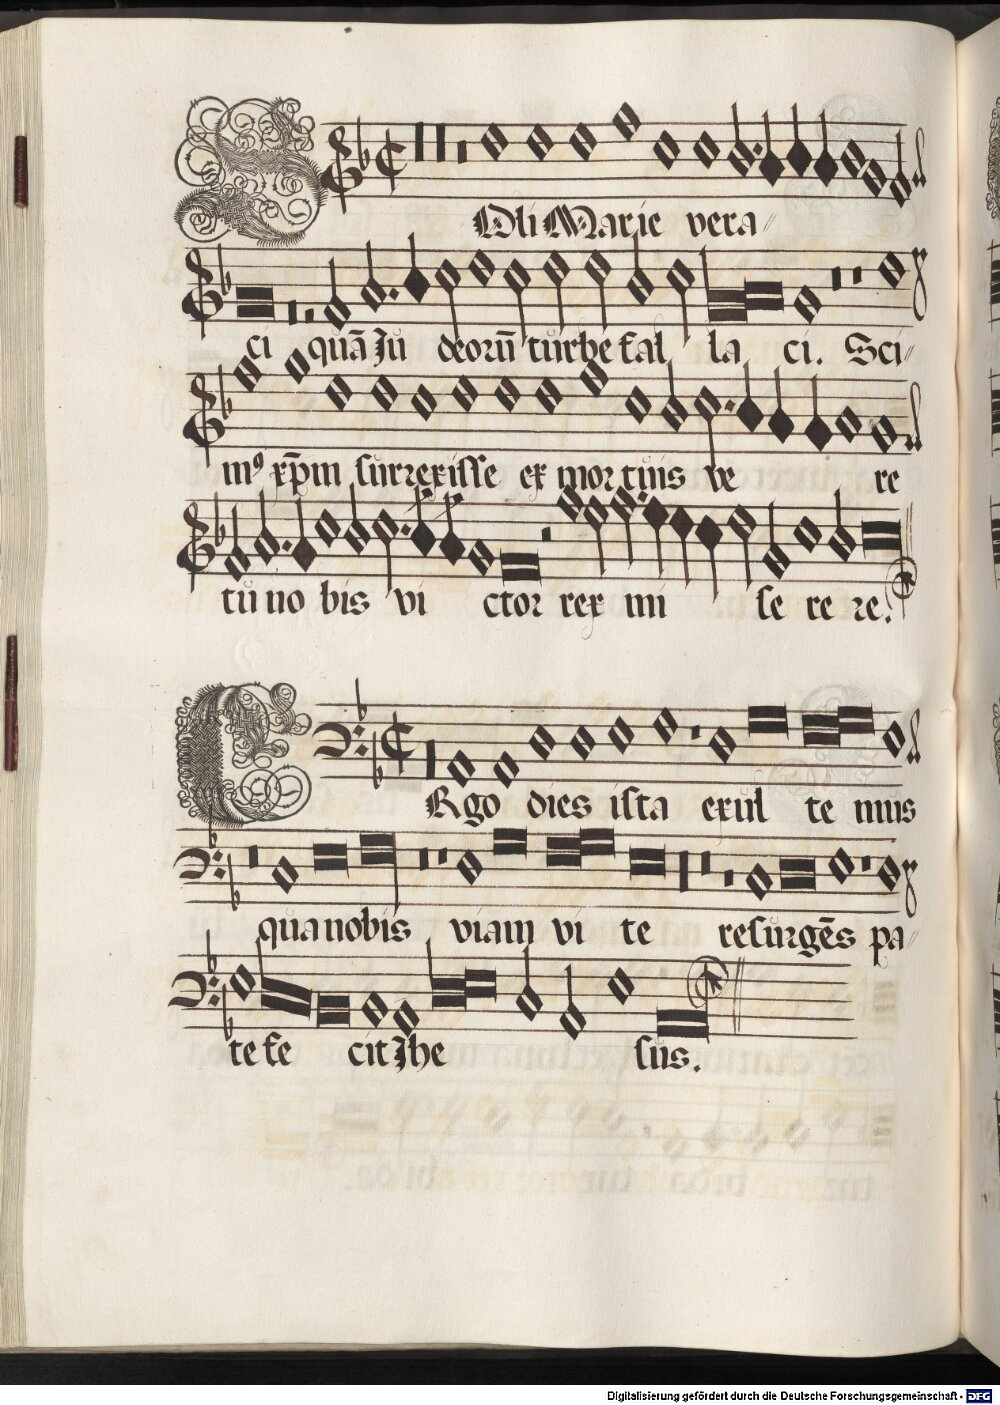 SOli Marie vera
ci quā Ju deorū turbe fal la ci. Sci
mꝯ xp̄m surrexisse ex mortuis ve re
tu no bis vi ctor rex mi se re re.
ERgo dies ista exul te mus
qua nobis viam vi te resurgēs pa
te fe cit Jhe sus.
Digitalisierung gefördert durch die Deutsche Forschungsgemeinschaft - DFG